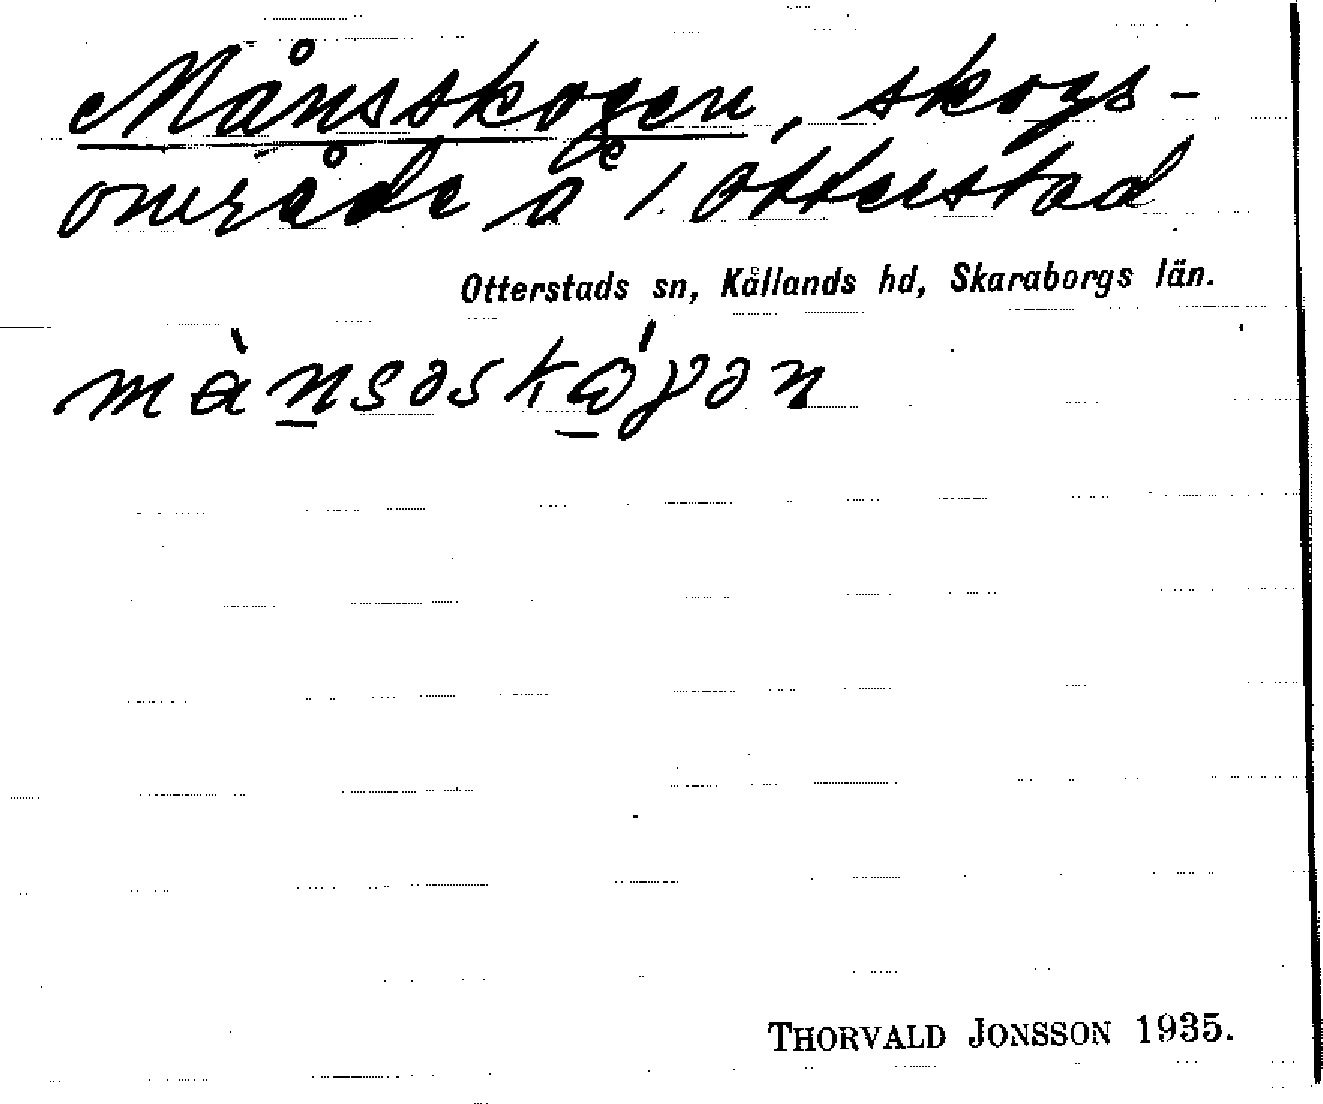 Månsskogen, skogs-
område å 1 Otterstad
Otterstads sn, Kållands hd, Skaraborgs län.
mànsəskóγən
THORVALD JONSSON 1935.